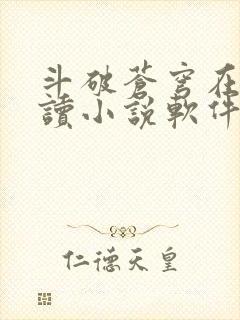 斗破蒼穹在
讀小説軟件
仁德天皇